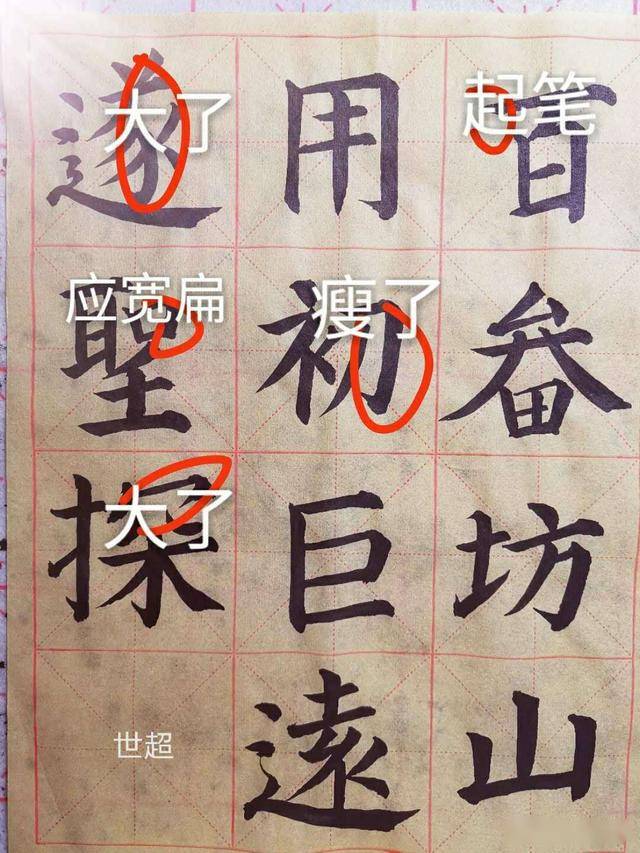 百畚坊山
用初巨遠
遂聖探
大了
起笔
应宽扁
瘦了
大了
世超